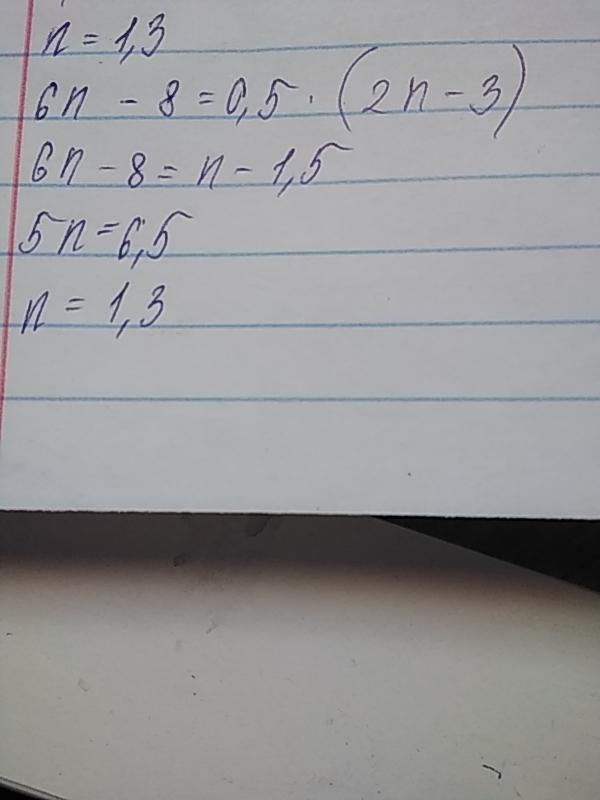 n = 1,3
6n - 8 = 0,5 · (2n - 3)
6n - 8 = n - 1,5
5n = 6,5
n = 1,3